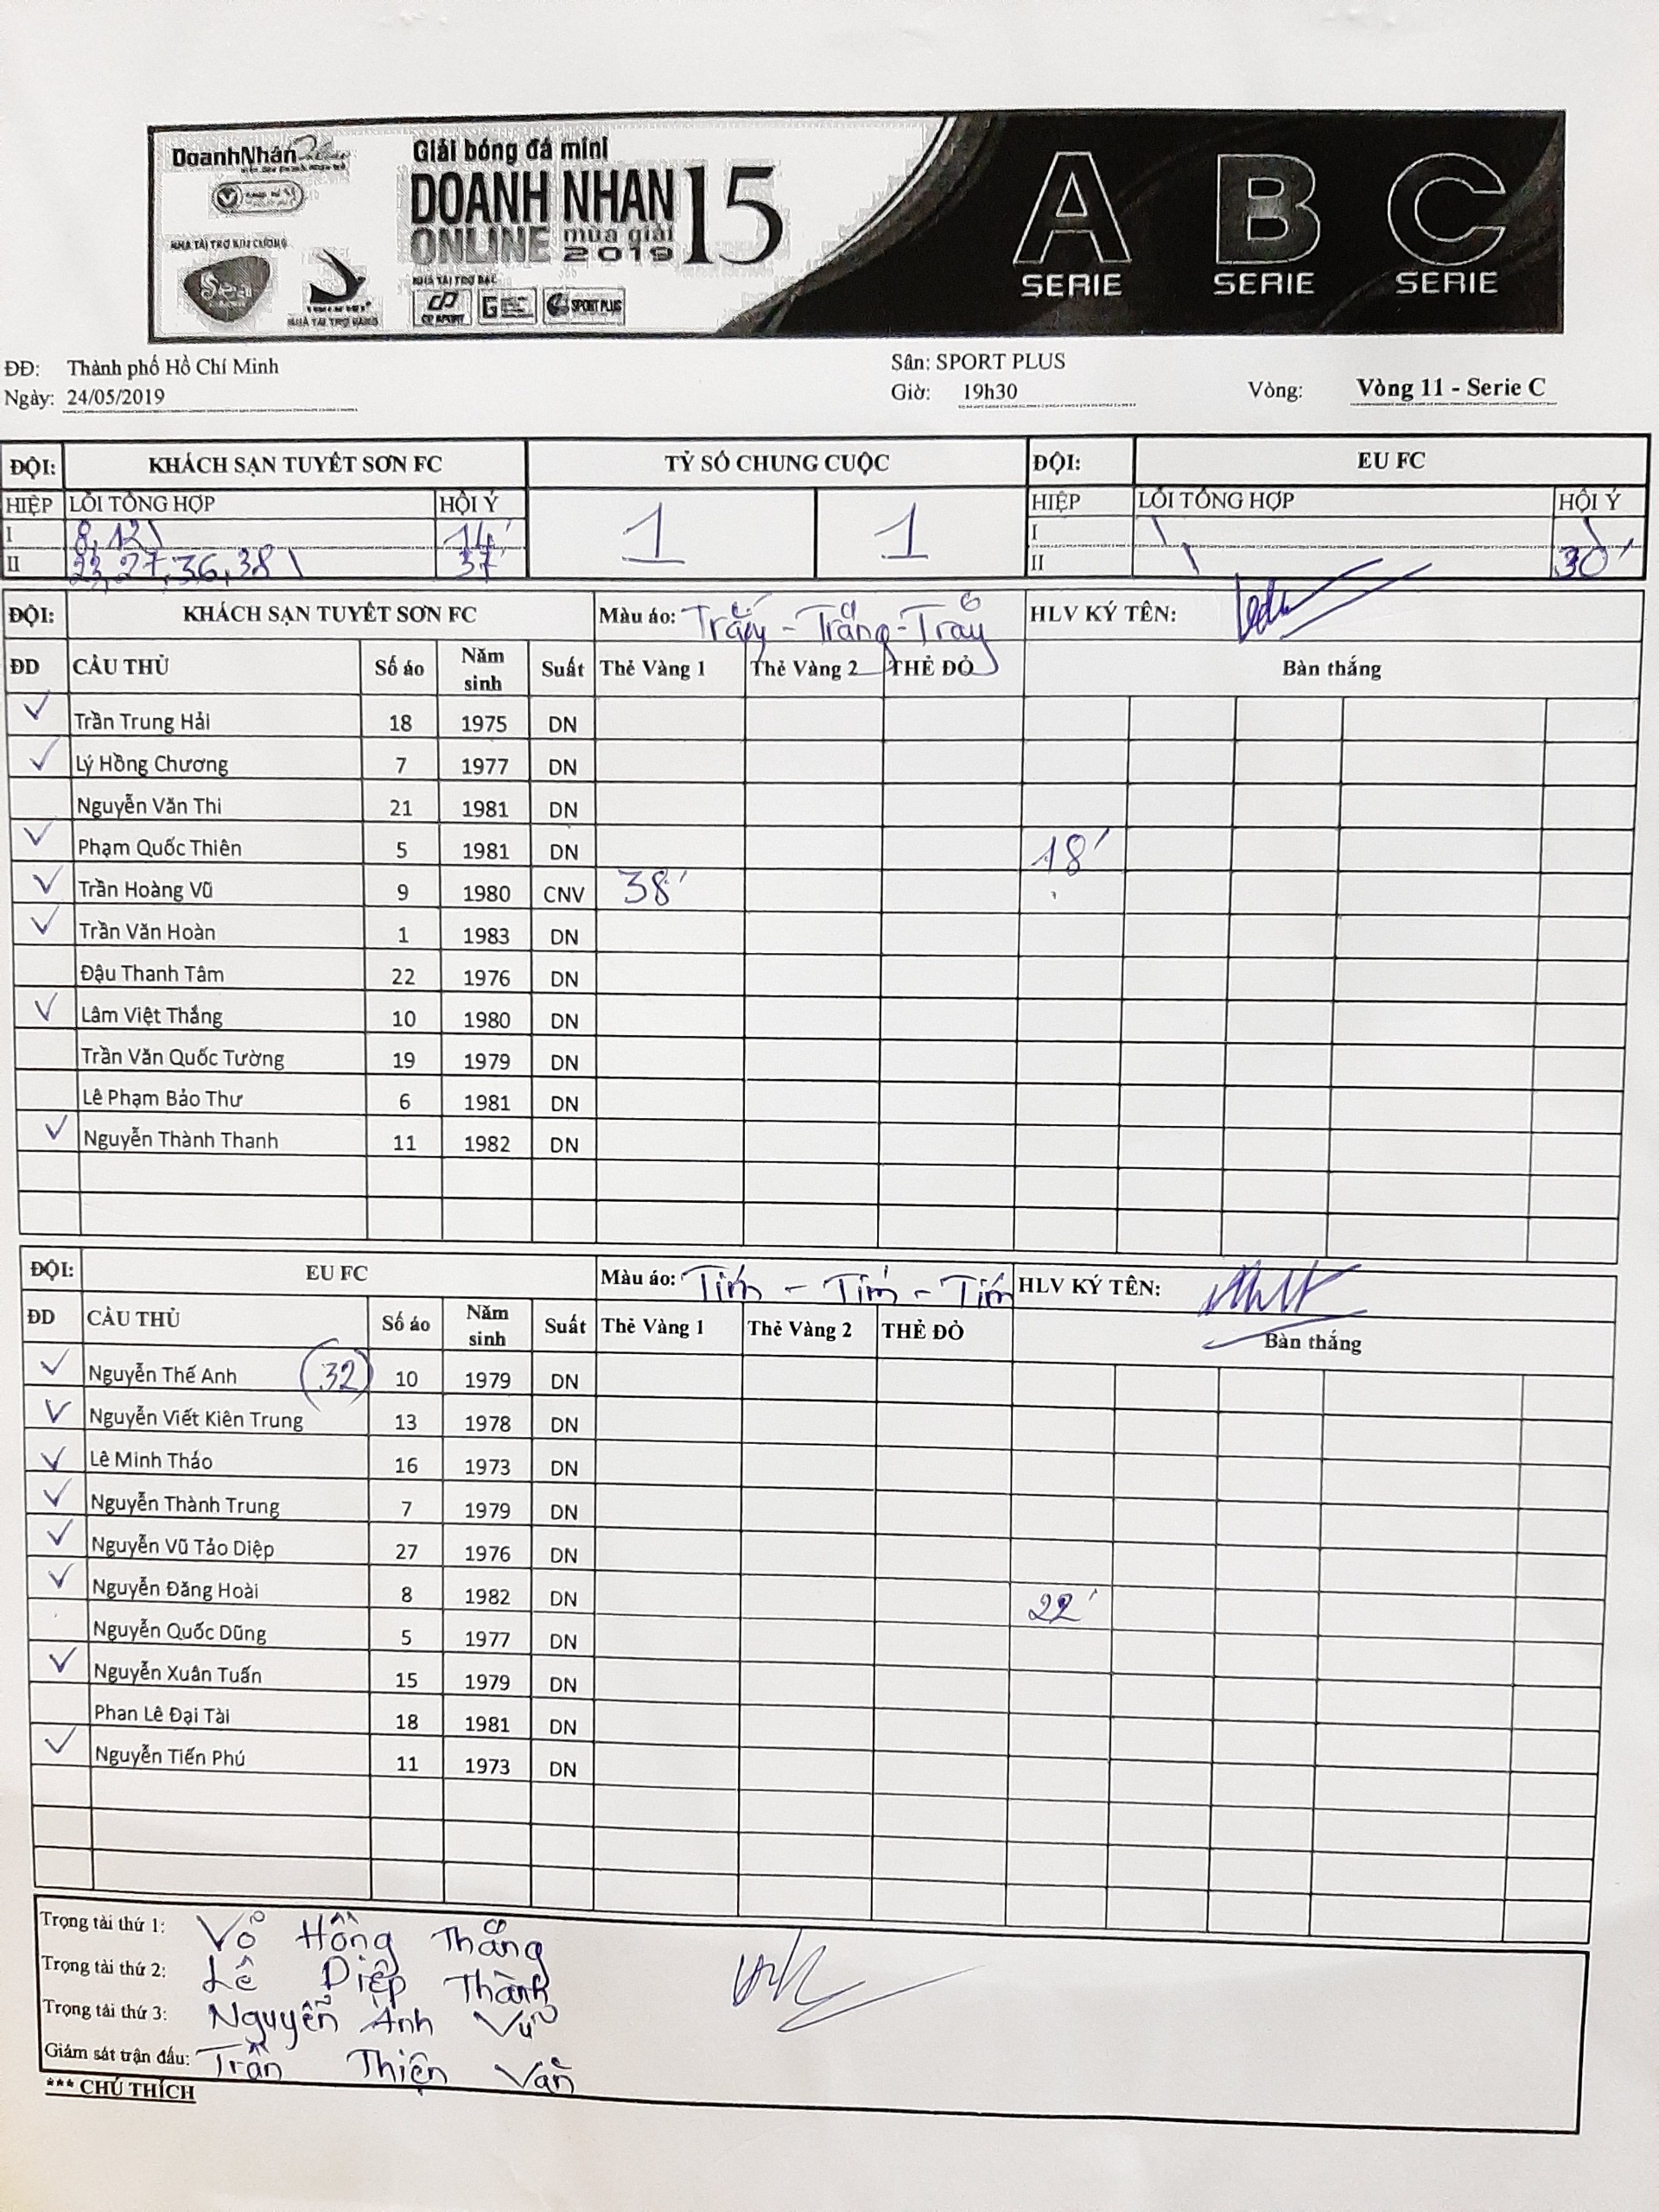 DoanhNhân
Giải bóng đá mini
DOANH NHAN 15
ONLINE mùa giải 2019
NHÀ TÀI TRỢ KIM CƯƠNG
NHÀ TÀI TRỢ BẠC
NHÀ TÀI TRỢ VÀNG
CP SPORT GEC SPORT PLUS
A B C
SERIE SERIE SERIE
ĐĐ: Thành phố Hồ Chí Minh Sân: SPORT PLUS
Ngày: 24/05/2019 Giờ: 19h30 Vòng: Vòng 11 - Serie C
ĐỘI: KHÁCH SẠN TUYẾT SƠN FC TỶ SỐ CHUNG CUỘC ĐỘI: EU FC
HIỆP LỖI TỔNG HỢP HỘI Ý 1 1 HIỆP LỖI TỔNG HỢP HỘI Ý
I 8, 12 \ 14' I \
II 23, 27, 36, 38 \ 37' II \ 30'
ĐỘI: KHÁCH SẠN TUYẾT SƠN FC Màu áo: Trắng - Trắng - Trắng HLV KÝ TÊN:
ĐD CẦU THỦ Số áo Năm sinh Suất Thẻ Vàng 1 Thẻ Vàng 2 THẺ ĐỎ Bàn thắng
✓ Trần Trung Hải 18 1975 DN
✓ Lý Hồng Chương 7 1977 DN
Nguyễn Văn Thi 21 1981 DN
✓ Phạm Quốc Thiên 5 1981 DN 18'
✓ Trần Hoàng Vũ 9 1980 CNV 38'
✓ Trần Văn Hoàn 1 1983 DN
Đậu Thanh Tâm 22 1976 DN
✓ Lâm Việt Thắng 10 1980 DN
Trần Văn Quốc Tường 19 1979 DN
Lê Phạm Bảo Thư 6 1981 DN
✓ Nguyễn Thành Thanh 11 1982 DN
ĐỘI: EU FC Màu áo: Tím - Tím - Tím HLV KÝ TÊN:
ĐD CẦU THỦ Số áo Năm sinh Suất Thẻ Vàng 1 Thẻ Vàng 2 THẺ ĐỎ Bàn thắng
✓ Nguyễn Thế Anh 32 10 1979 DN
✓ Nguyễn Viết Kiên Trung 13 1978 DN
✓ Lê Minh Thảo 16 1973 DN
✓ Nguyễn Thành Trung 7 1979 DN
✓ Nguyễn Vũ Tảo Diệp 27 1976 DN
✓ Nguyễn Đăng Hoài 8 1982 DN 22'
Nguyễn Quốc Dũng 5 1977 DN
✓ Nguyễn Xuân Tuấn 15 1979 DN
Phan Lê Đại Tài 18 1981 DN
✓ Nguyễn Tiến Phú 11 1973 DN
Trọng tài thứ 1: Võ Hồng Thắng
Trọng tài thứ 2: Lê Diệp Thành
Trọng tài thứ 3: Nguyễn Anh Vũ
Giám sát trận đấu: Trần Thiện Văn
*** CHÚ THÍCH